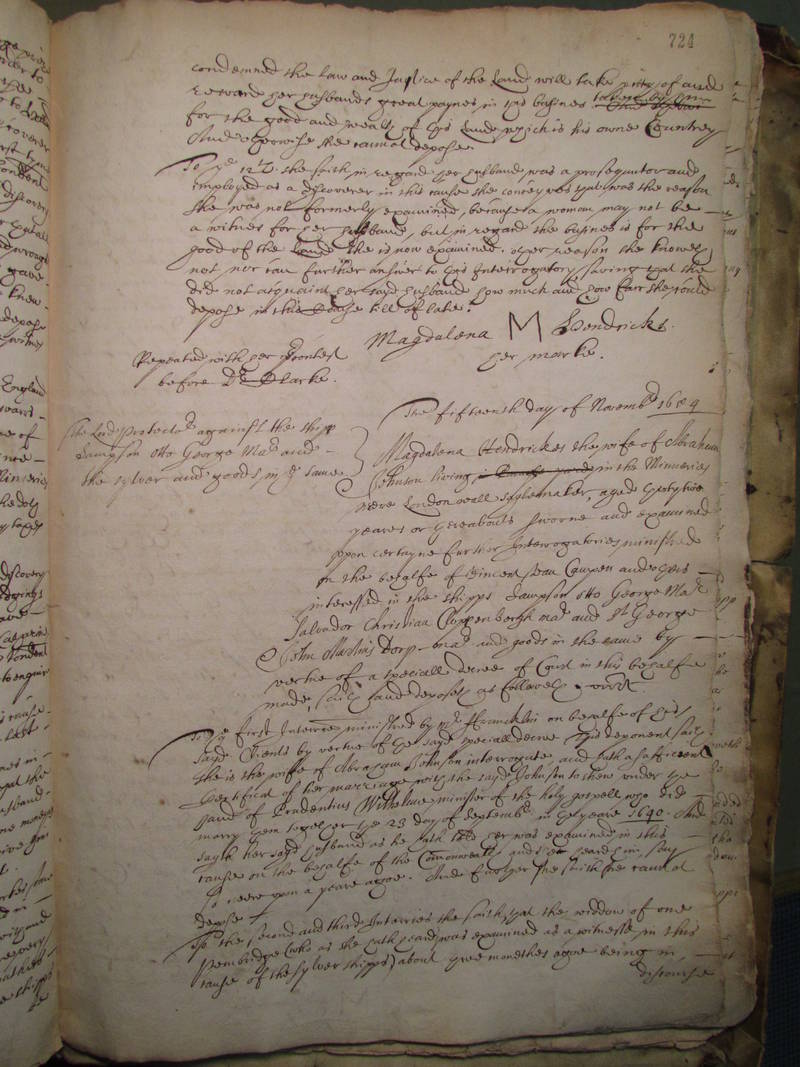 724
condemned the law and Justice of the Land will take pitty of and
reward her husbands great paynes in this busines taken by him
for the good and wealth of this Land which is his owne Countrey
And otherwise she cannot depose.
To the 12th. she saith in regard her husband was a prosequutor and
imployed as a discoverer in this cause she conceyves that was the reason
she was not formerly examined, because a woman may not be
a witnes for her husband, but in regard the busines is for the
good of the Land she is now examined. other reason she knoweth
not nor can further answer to this Interrogatory, saving that she
did not acquaint her sayd husband how much and how farr she could
depose in this Cause till of late.
Magdalena M Hendrickes.
her marke.
Repeated with her Contest
before Dr. Clarke.
The fifteenth day of Novembr 1654
The Lord Protector against the shipp
Sampson Otto George Mar and
the sylver and goods in the same
Magdalena Hendrickes the wife of Abraham
Johnson living in the Minneries
nere London wall, aged
yeares or thereabouts sworne and examined
upon certayne further Interrogatories ministred
on the behalfe of Vincent Van Campen and others
interessed in the shipps Sampson Otto George Mar
Salvador Christian Cloppenbergh mar and St George
John Martins Dorp mar and goods in the same by
vertue of a speciall decree of Court in this behalfe
made, saith and deposeth as followeth
To the first Interrie ministred by mr ffrancklin on behalfe of his
sayd Clients by vertue of the sayd speciall decree This deponent saith
she is the wiffe of Abraham Johnson interrogate, and hath a sufficient
Certificat of her marriage with the sayd Johnson to shew under the
hand of Prudentius Wilhelme minister of the holy gospell who did
marry them together the 23 day of Septembr in the yeare 1640. And
sayth her sayd husband as he hath told her was examined in this
cause on the behalfe of the Commonwealth and she heard him say
so neere upon a yeare agoe. And further she saith she cannot
depose
To the second and third Interries she saith, that the widdow of one
Pembridge (who as she hath heard was examined as a witnesse in this
cause of the sylver shipps) about three monethes agoe being in
discourse